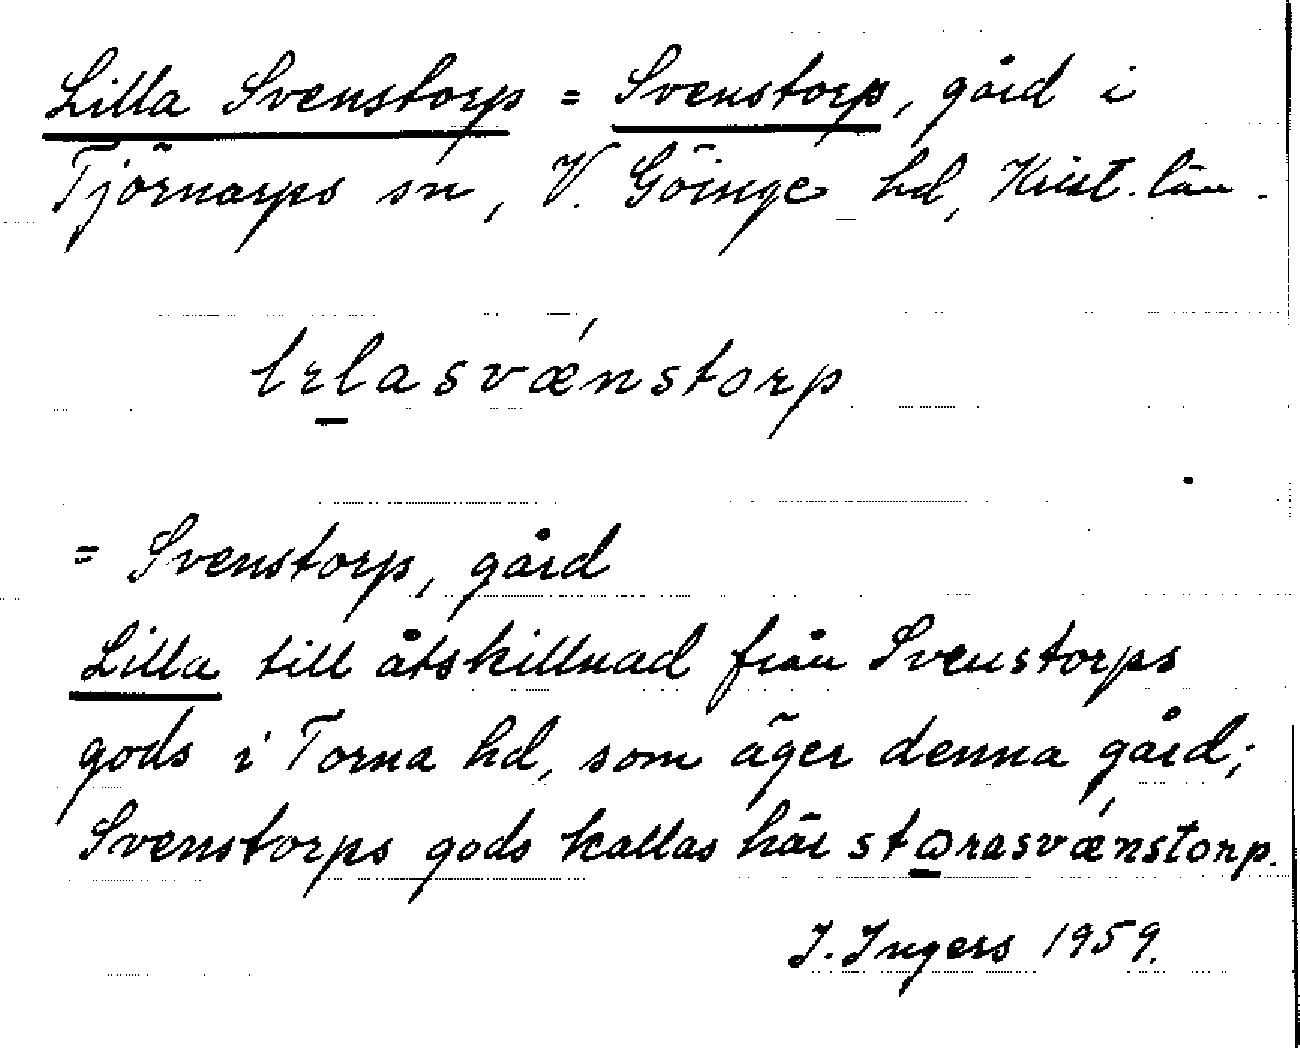 Lilla Svenstorp = Svenstorp, gård i
Tjörnarps sn, V. Göinge hd, Krist. län.
lɪlasvǽnstorp
= Svenstorp, gård
Lilla till åtskillnad från Svenstorps
gods i Torna hd, som äger denna gård;
Svenstorps gods kallas här stɑrasvǽnstorp.
I. Ingers 1959.